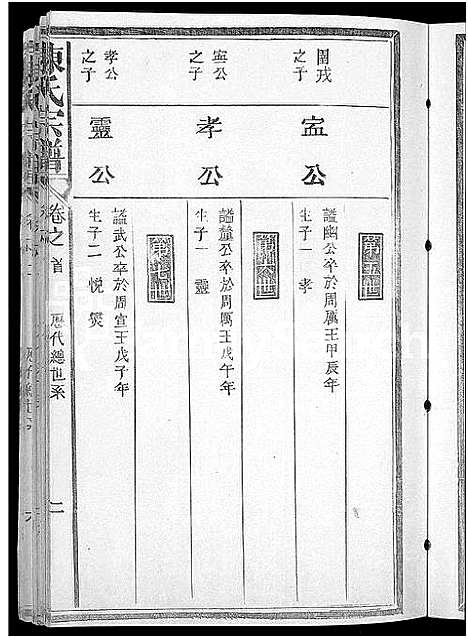 第五世
圉戎之子
𡧛公
諡幽公卒於周厲王甲辰年
生子一孝
第六世
𡧛公之子
孝公
諡釐公卒於周厲王戊午年
生子一靈
第七世
孝公之子
靈公
諡武公卒於周宣王戊子年
生子二悅爕
陳氏宗譜
卷之首
歷代總世系
二